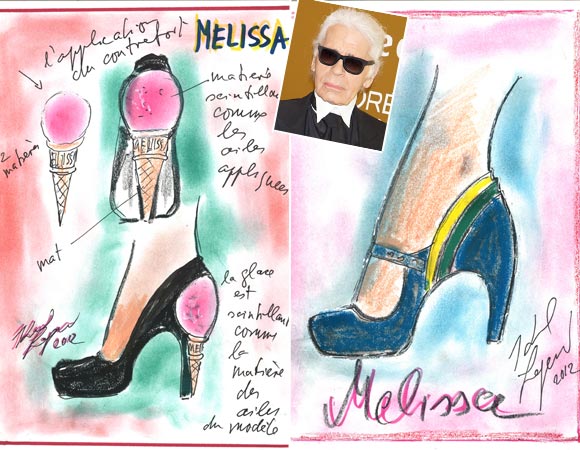 l'application
du contrefort
MELISSA
matière
scintillante
comme
les
ailes
appliquées
2
matières
MELISSA
mat
la glace
est
scintillante
comme
la
matière
des
ailes
du modèle
2012
Melissa
2012